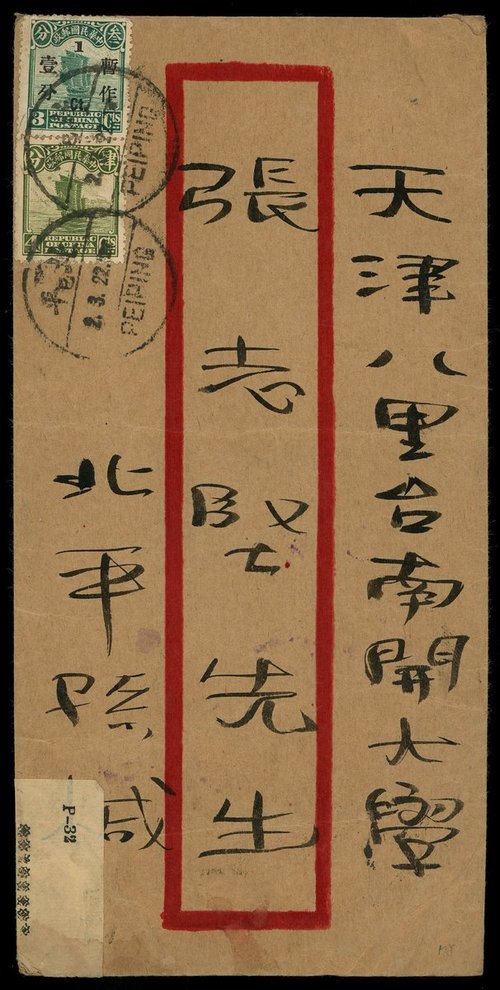 天津八里台南開大學
張志堅先生
北平孫緘
叁分
中華民國郵政
暫作壹分
1 Ct.
3 Cts
REPUBLIC OF CHINA POSTAGE
中華民國郵政
4 Cts
REPUBLIC OF CHINA POSTAGE
PEIPING
2.3.22
PEIPING
P-32